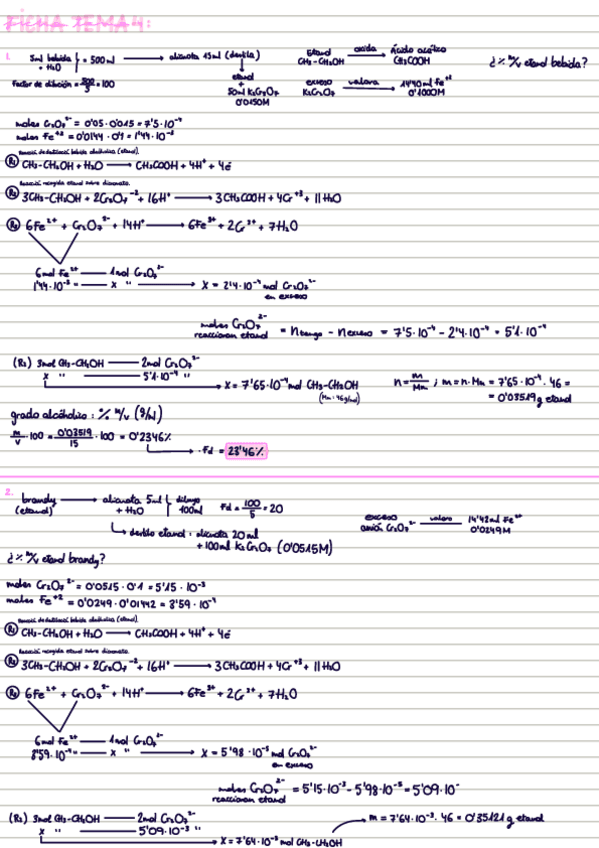 FICHA TEMA 4:
1.
5ml bebida + H₂O } = 500ml → alicuota 15ml (destila)
Factor de dilución = 500/5 = 100
etanol + 50ml K₂Cr₂O₇ 0'0150M
Etanol CH₃-CH₂OH oxida → Ácido acético CH₃COOH
exceso K₂Cr₂O₇ valora → 14'40ml Fe⁺² 0'1000M
¿% m/v etanol bebida?
moles Cr₂O₇²⁻ = 0'05 · 0'015 = 7'5·10⁻⁴
moles Fe⁺² = 0'0144 · 0'1 = 1'44·10⁻³
Reacción destilación bebida alcohólica (etanol).
R₁ CH₃-CH₂OH + H₂O → CH₃COOH + 4H⁺ + 4e⁻
Reacción recogida etanol sobre dicromato.
R₂ 3CH₃-CH₂OH + 2Cr₂O₇⁻² + 16H⁺ → 3CH₃COOH + 4Cr⁺³ + 11H₂O
R₃ 6Fe²⁺ + Cr₂O₇²⁻ + 14H⁺ → 6Fe³⁺ + 2Cr³⁺ + 7H₂O
6mol Fe²⁺ — 1mol Cr₂O₇²⁻
1'44·10⁻³ = — x " → x = 2'4·10⁻⁴ mol Cr₂O₇²⁻
en exceso
moles Cr₂O₇²⁻ reaccionan etanol = n tengo - n exceso = 7'5·10⁻⁴ - 2'4·10⁻⁴ = 5'1·10⁻⁴
(R₂) 3mol CH₃-CH₂OH — 2mol Cr₂O₇²⁻
x " — 5'1·10⁻⁴ " → x = 7'65·10⁻⁴ mol CH₃-CH₂OH
(Mm = 46g/mol)
n = m/Mm ; m = n·Mm = 7'65·10⁻⁴ · 46 =
= 0'03519 g etanol
grado alcohólico : % m/v (g/ml)
m/v · 100 = 0'03519/15 · 100 = 0'2346%
· Fd = 23'46%
2.
brandy (etanol) → alicuota 5ml + H₂O } diluyo 100ml Fd = 100/5 = 20
→ destilo etanol : alicuota 20ml
+ 100ml K₂Cr₂O₇ (0'0515M)
exceso anión Cr₂O₇²⁻ valoro → 14'42ml Fe²⁺ 0'0249M
¿% m/v etanol brandy?
moles Cr₂O₇²⁻ = 0'0515 · 0'1 = 5'15·10⁻³
moles Fe⁺² = 0'0249 · 0'01442 = 3'59·10⁻⁴
Reacción destilación bebida alcohólica (etanol).
R₁ CH₃-CH₂OH + H₂O → CH₃COOH + 4H⁺ + 4e⁻
Reacción recogida etanol sobre dicromato.
R₂ 3CH₃-CH₂OH + 2Cr₂O₇⁻² + 16H⁺ → 3CH₃COOH + 4Cr⁺³ + 11H₂O
R₃ 6Fe²⁺ + Cr₂O₇²⁻ + 14H⁺ → 6Fe³⁺ + 2Cr³⁺ + 7H₂O
6mol Fe²⁺ — 1mol Cr₂O₇²⁻
3'59·10⁻⁴ = — x " → x = 5'98·10⁻⁵ mol Cr₂O₇²⁻
en exceso
moles Cr₂O₇²⁻ reaccionan etanol = 5'15·10⁻³ - 5'98·10⁻⁵ = 5'09·10⁻
(R₂) 3mol CH₃-CH₂OH — 2mol Cr₂O₇²⁻
x " — 5'09·10⁻³ "
x = 7'64·10⁻³ mol CH₃-CH₂OH
m = 7'64·10⁻³ · 46 = 0'35121 g etanol